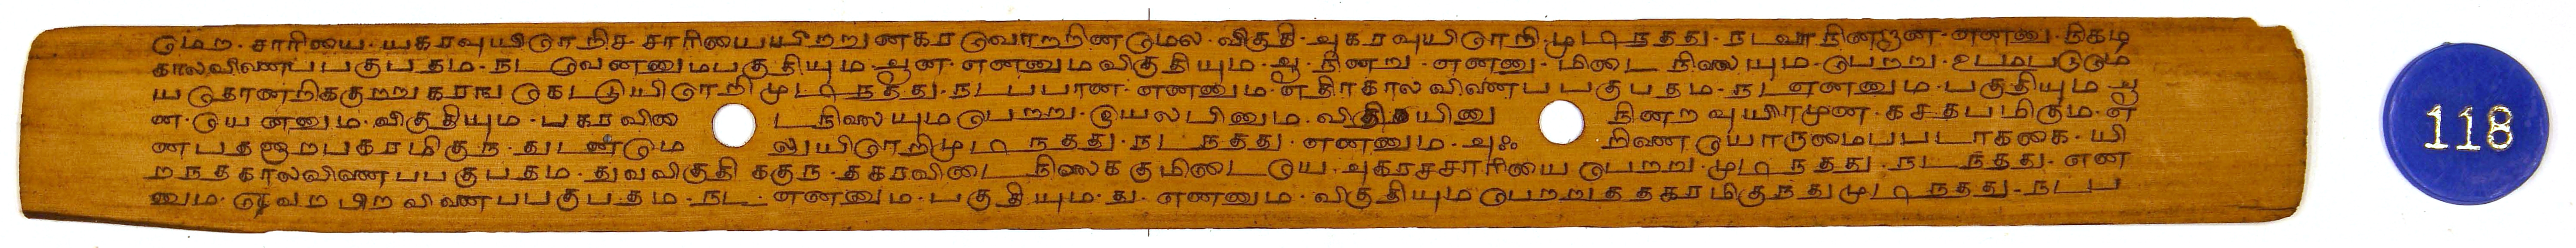 மெற. சாரியை. யகரவுயிரொறிச சாரியையயிறறு ணகர வொறறினமெல. விகுதி. அகரவுயிரொறி. முடிநதது. நடவாநினறன. எனனு. நிகழ
காலவினைபபகுபதம. நட வெனனுமபகுதியும. ஆன. எனனும விகுதியும. ஆ. நினறு. எனனு. மிடை நிலையும. பெறறு. உடமபடுமெ
ய தொனறிககுறறுகரங கெட டுயிரொறி முடிநதது. நடபபான. எனனும. எதிர்கால வினைப பகுபதம. நட எனனும. பகுதியும அ
ன. யெனனும. விகுதியும. பகரவிடை நிலையும பெறறு. யியலபினும. விதியினு நினற வுயிரமுன. கசதபமிகும. எ
னபதனாறபகரமிகுந. துடனமெ லுயிரொறிமுடிநதது. நடநதது. எனனும. அஃ றிணை யொருமைபபடரககை. யி
றநதகாலவினைபபகுபதம. துவவிகுதி ககுந. தகரவிடை நிலைககுமிடையெ. அகரசசாரியை பெறறு. முடிநதது. நடநதது. என
னும. தெவறபிறவினைபபகுபதம. நட. எனனும. பகுதியும. து. எனனும. விகுதியும பெறறுததகரமிகுநதுமுடிநதது. நடப
118